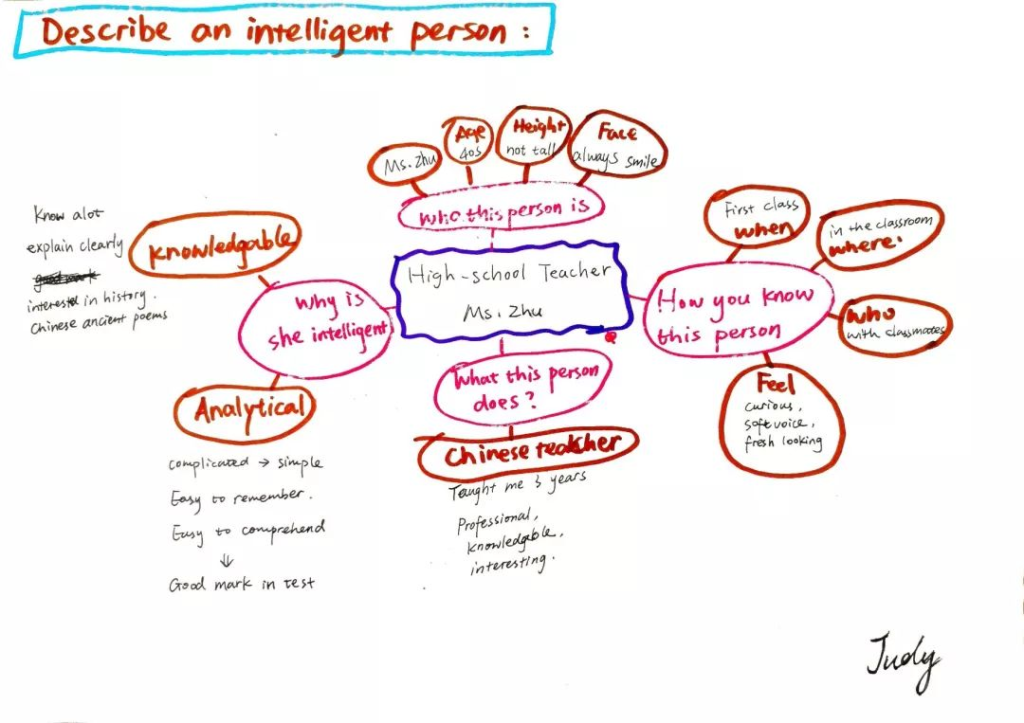 Describe an intelligent person :
Ms. Zhu
Age
40s
Height
not tall
Face
always smile
who this person is
High-school Teacher
Ms. Zhu
Why is
she intelligent
Knowledgable
Know alot
explain clearly
interested in history.
Chinese ancient poems
Analytical
complicated → simple
Easy to remember.
Easy to comprehend
⇓
Good mark in test
What this person
does?
Chinese teacher
Taught me 3 years
Professional,
knowledgable,
interesting.
How you know
this person
First class
when
in the classroom
where.
who
with classmates
Feel
curious,
soft voice,
fresh looking
Judy